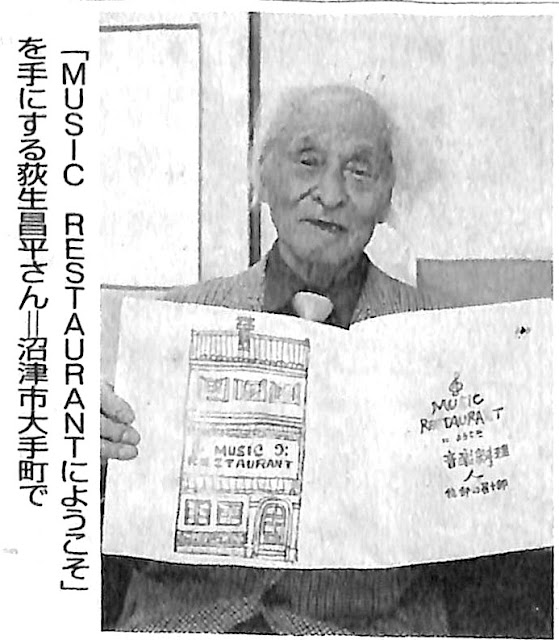 「MUSIC RESTAURANTにようこそ」
を手にする荻生昌平さん＝沼津市大手町で
MUSIC
RESTAURANT
MUSIC
RESTAURANT
音楽料理
人